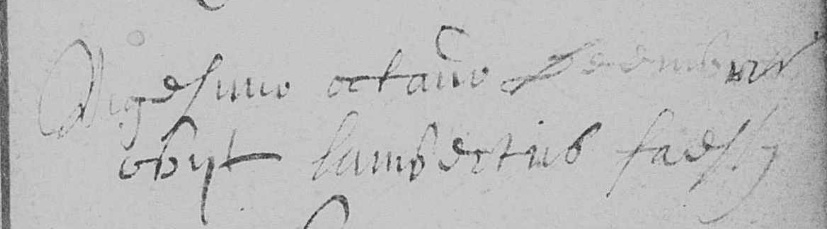 Vigesimo octavo decembris
obijt lambertus faes